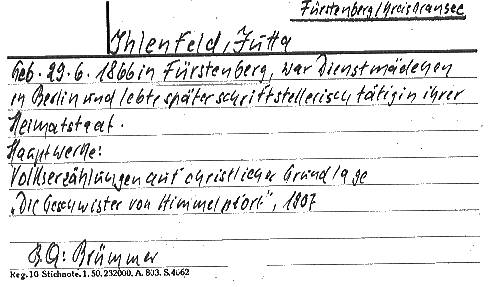 Fürstenberg/Kreis Gransee
Ihlenfeld, Jutta
Geb. 29.6.1866 in Fürstenberg, war Dienstmädchen
in Berlin und lebte später schriftstellerisch tätig in ihrer
Heimatstadt.
Hauptwerke:
Volkserzählungen auf christlicher Grundlage
„Die Geschwister von Himmelpfort", 1907
B.Q: Brümmer
Reg. 10 Stichnote. 1. 50. 232000. A. 803. S. 4062